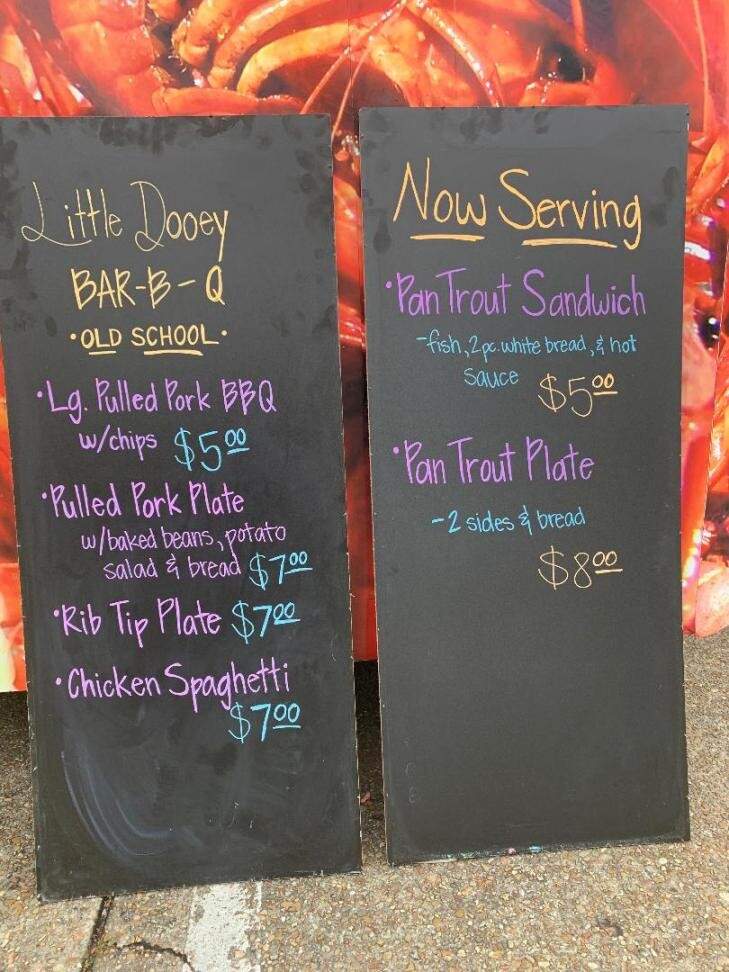 Little Dooey
BAR-B-Q
•OLD SCHOOL•
•Lg. Pulled Pork BBQ
w/chips $5.00
•Pulled Pork Plate
w/baked beans, potato
salad & bread $7.00
•Rib Tip Plate $7.00
•Chicken Spaghetti
$7.00
Now Serving
•Pan Trout Sandwich
-fish, 2pc. white bread, & hot
sauce $5.00
•Pan Trout Plate
-2 sides & bread
$8.00